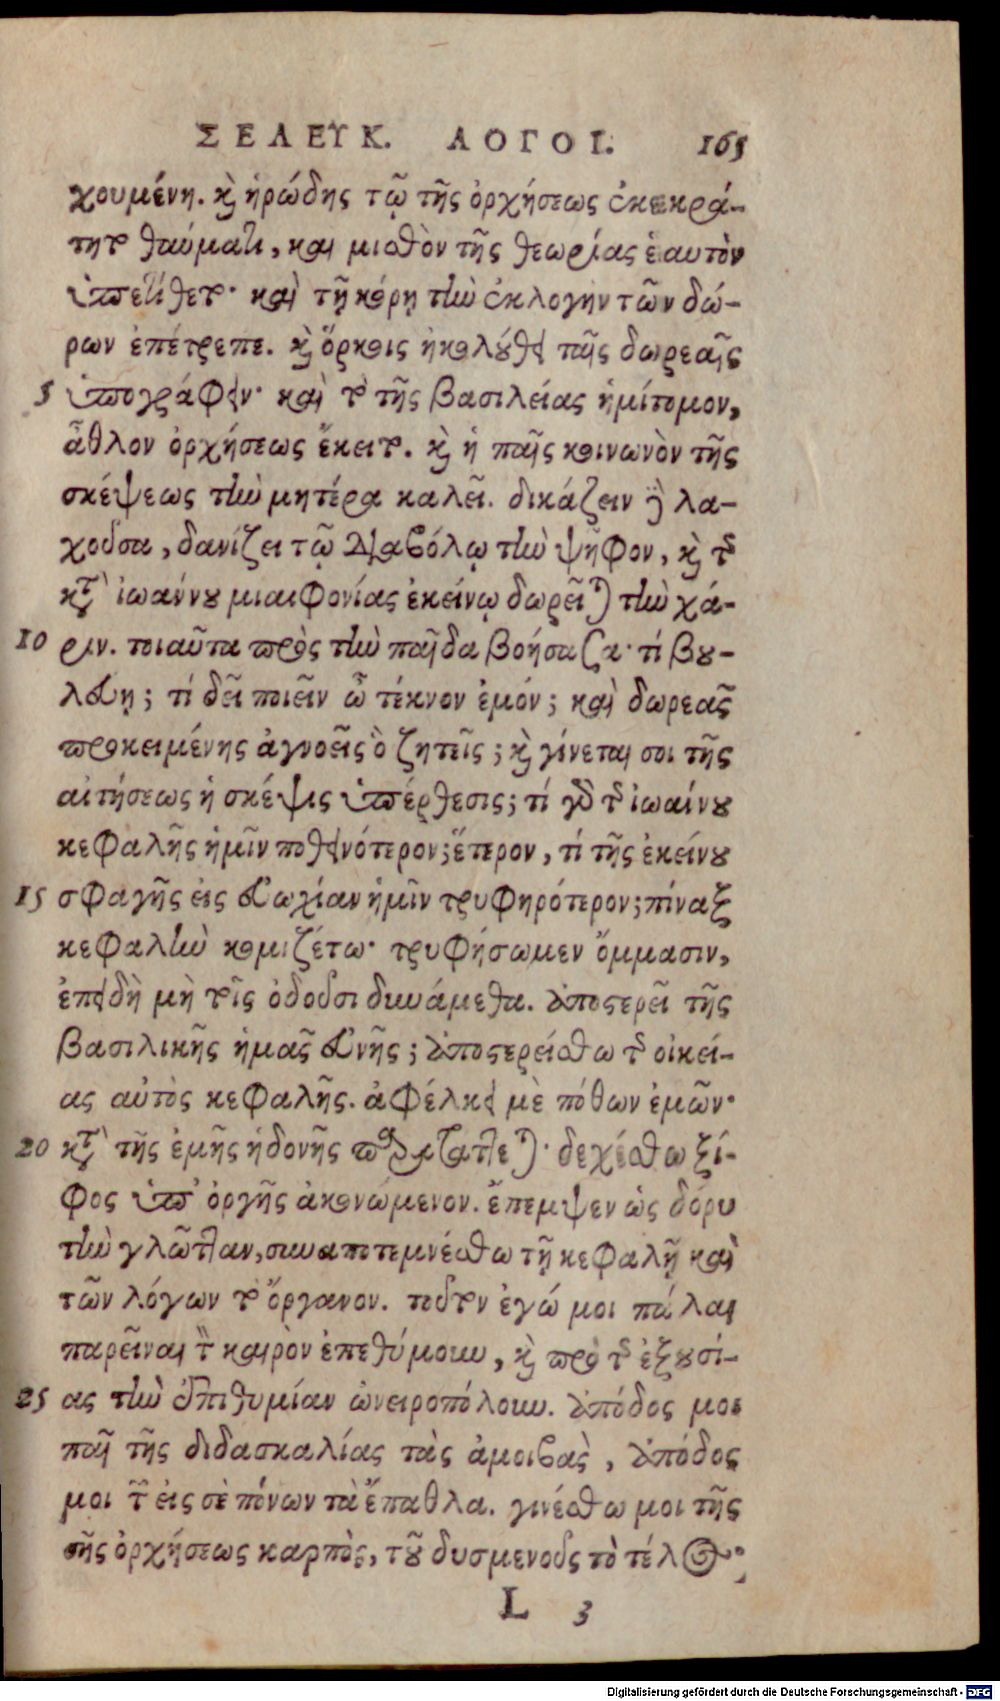 ΣΕΛΕΥΚ. ΛΟΓΟΙ. 165
χουμένη. καὶ ἡρώδης τῷ τῆς ὀρχήσεως ἐκεκρά-
τητο θαύματι, καὶ μισθὸν τῆς θεωρίας ἑαυτὸν
ὑπετίθετο· καὶ τῇ κόρῃ τὴν ἐκλογὴν τῶν δώ-
ρων ἐπέτρεπε. καὶ ὅρκοις ἠκολούθει ταῖς δωρεαῖς
5 ὑπογράφειν· καὶ τὸ τῆς βασιλείας ἡμίτομον,
ἆθλον ὀρχήσεως ἔκειτο. καὶ ἡ παῖς κοινωνὸν τῆς
σκέψεως τὴν μητέρα καλεῖ. δικάζειν δὲ λα-
χοῦσα, δανίζει τῷ Διαβόλῳ τὴν ψῆφον, καὶ τοῦ
κατὰ ἰωάννου μιαιφονίας ἐκείνῳ δωρεῖται τὴν χά-
10 ριν. τοιαῦτα πρὸς τὴν παῖδα βοήσασα· τί βού-
λευῃ; τί δεῖ ποιεῖν ὦ τέκνον ἐμόν; καὶ δωρεᾶς
προκειμένης ἀγνοεῖς ὃ ζητεῖς; καὶ γίνεταί σοι τῆς
αἰτήσεως ἡ σκέψις ὑπέρθεσις; τί γὰρ τοῦ ἰωαίνου
κεφαλῆς ἡμῖν ποθεινότερον; ἕτερον, τί τῆς ἐκείνου
15 σφαγῆς εἰς εὐωχίαν ἡμῖν τρυφηρότερον; πίναξ
κεφαλὴν κομιζέτω· τρυφήσωμεν ὄμμασιν,
ἐπειδὴ μὴ τοῖς ὀδοῦσι δυνάμεθα. ἀποστερεῖ τῆς
βασιλικῆς ἡμᾶς εὐνῆς; ἀποστερείσθω τοῦ οἰκεί-
ας αὐτὸς κεφαλῆς. ἀφέλκει μὲ πόθων ἐμῶν·
20 κατὰ τῆς ἐμῆς ἡδονῆς παρατάττεται· δεχέσθω ξί-
φος ὑπ' ὀργῆς ἀκονώμενον. ἔπεμψεν ὡς δόρυ
τὴν γλῶτταν, συναποτεμνέσθω τῇ κεφαλῇ καὶ
τῶν λόγων τὸ ὄργανον. τοῦτον ἐγώ μοι πάλαι
παρεῖναι τὸν καιρὸν ἐπεθύμουν, καὶ πρὸ τοῦ ἐξουσί-
25 ας τὴν ἐπιθυμίαν ὠνειροπόλουν. ἀπόδος μοι
παῖ τῆς διδασκαλίας τὰς ἀμοιβὰς, ἀπόδος
μοι τῶν εἰς σὲ πόνων τὰ ἔπαθλα. γινέσθω μοι τῆς
σῆς ὀρχήσεως καρπὸς, τοῦ δυσμενοῦς τὸ τέλος·
L 3
Digitalisierung gefördert durch die Deutsche Forschungsgemeinschaft - DFG